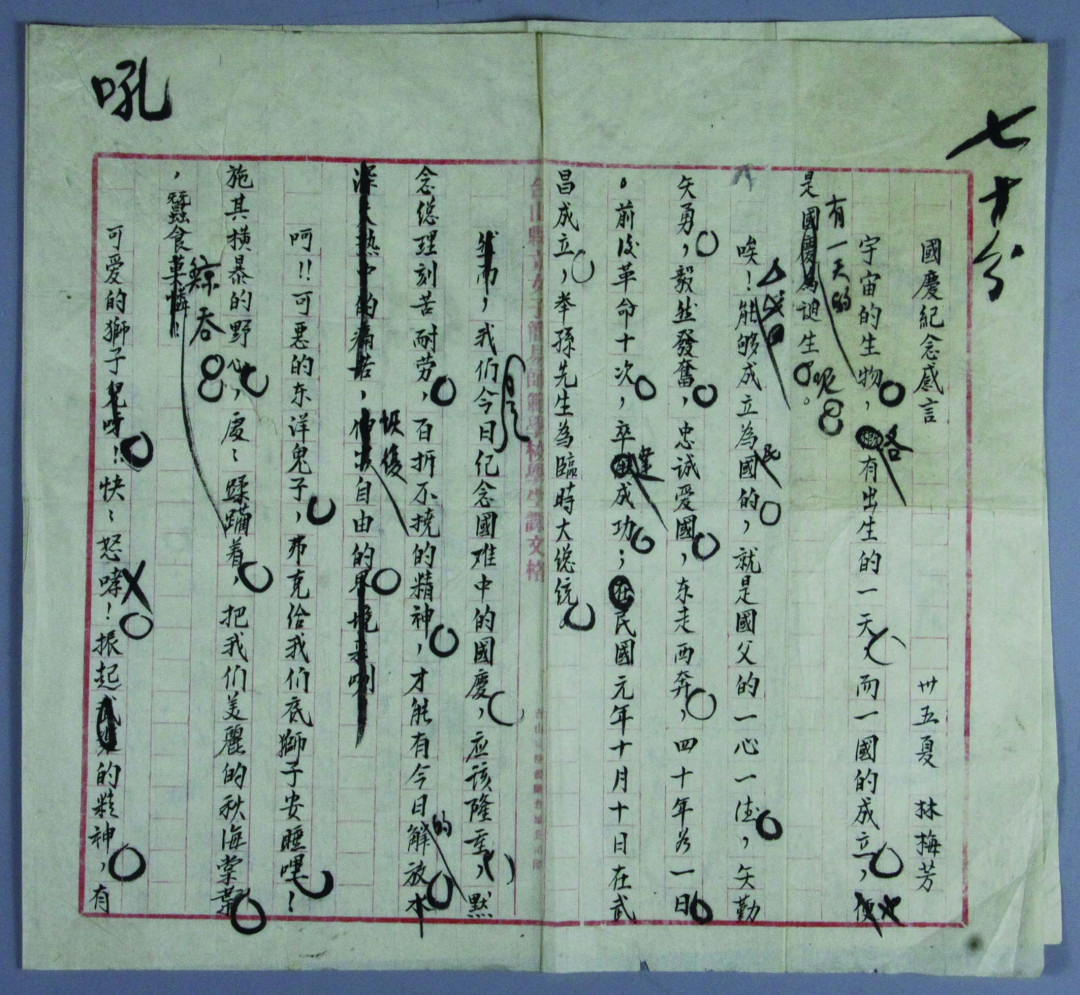 七十分
國慶紀念感言
卅五夏 林梅芳
宇宙的生物，各有出生的一天，而一國的成立，便也
有一天的
是國慶為誕生呢。
唉！能够成立為民國的，就是國父的一心一德，矢勤
矢勇，毅然發奮，忠誠愛國，东走西奔，四十年为一日
。前後革命十次，卒達成功；在民國元年十月十日在武
昌成立，举孫先生為臨時大總统。
台山縣立女子簡易師範學校學生課文格
然而，我们今日纪念國难中的國慶，应该隆重，默
念總理刻苦耐劳，百折不撓的精神，才能有今日的解放水
深火热中的痛苦，恢復自由的界境来喇
呵！！可恶的东洋鬼子，弗克给我们底獅子安睡哩！
施其横暴的野心，處〻蹂躪着，把我们美麗的秋海棠葉
，蠶食鯨吞
可爱的獅子兒呀！快〻怒哮！振起的精神，有
吼